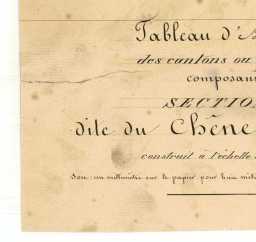 Tableau d'
des cantons ou
composant
SECTION
dite du Chêne
construit à l'échelle
Son: un millimètre sur le papier pour huit